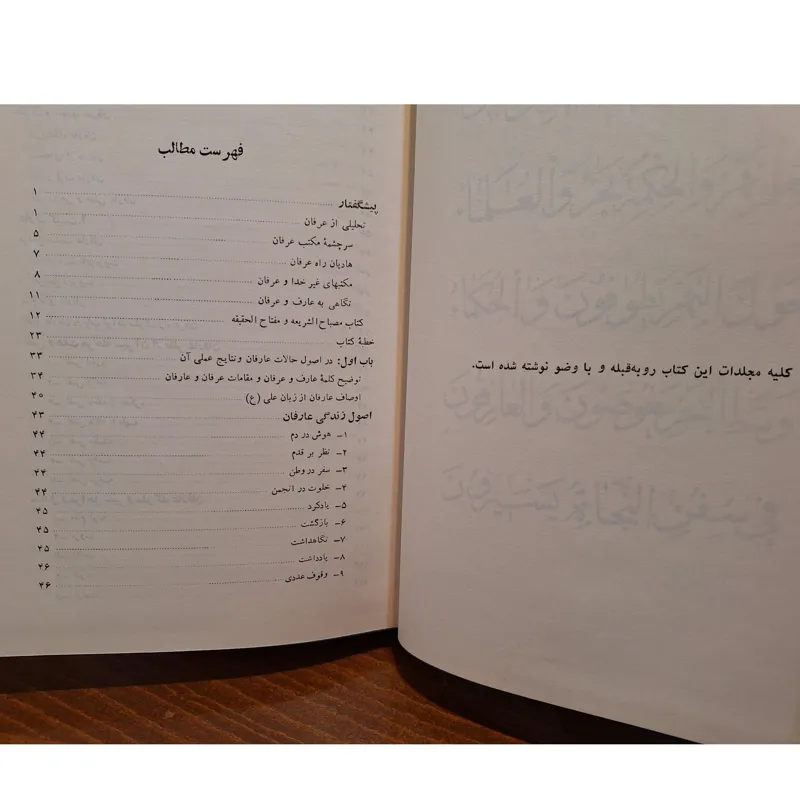 کلیه مجلدات این کتاب رو به قبله و با وضو نوشته شده است.
فهرست مطالب
پیشگفتار ۱
تحلیلی از عرفان ۱
سرچشمهٔ مکتب عرفان ۵
هادیان راه عرفان ۷
مکتبهای غیر خدا و عرفان ۸
نگاهی به عارف و عرفان ۱۱
کتاب مصباح الشریعه و مفتاح الحقیقه ۱۲
خطبهٔ کتاب ۲۳
باب اول: در اصول حالات عارفان ونتایج عملی آن ۳۳
توضیح کلمهٔ عارف و عرفان و مقامات عرفان و عارفان ۳۴
اوصاف عارفان از زبان علی (ع) ۴۰
اصول زندگی عارفان ۴۳
۱– هوش در دم ۴۴
۲– نظر بر قدم ۴۴
۳– سفر در وطن ۴۴
۴– خلوت در انجمن ۴۴
۵– یادکرد ۴۵
۶– بازگشت ۴۵
۷– نگاهداشت ۴۵
۸– یادداشت ۴۶
۹– وقوف عددی ۴۶